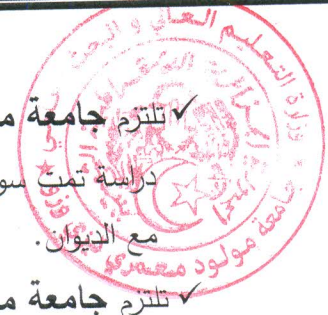 ✓ تلتزم جامعة م
دراسة تمت سو
مع الديوان.
✓ تلتزم جامعة م
وزارة التعليم العالي و البحث
جامعة مولود معمري